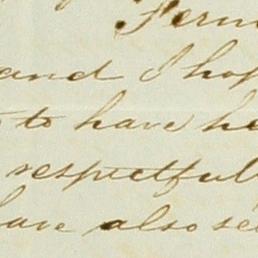 Fern
and I hop
to have he
respectful
have also se